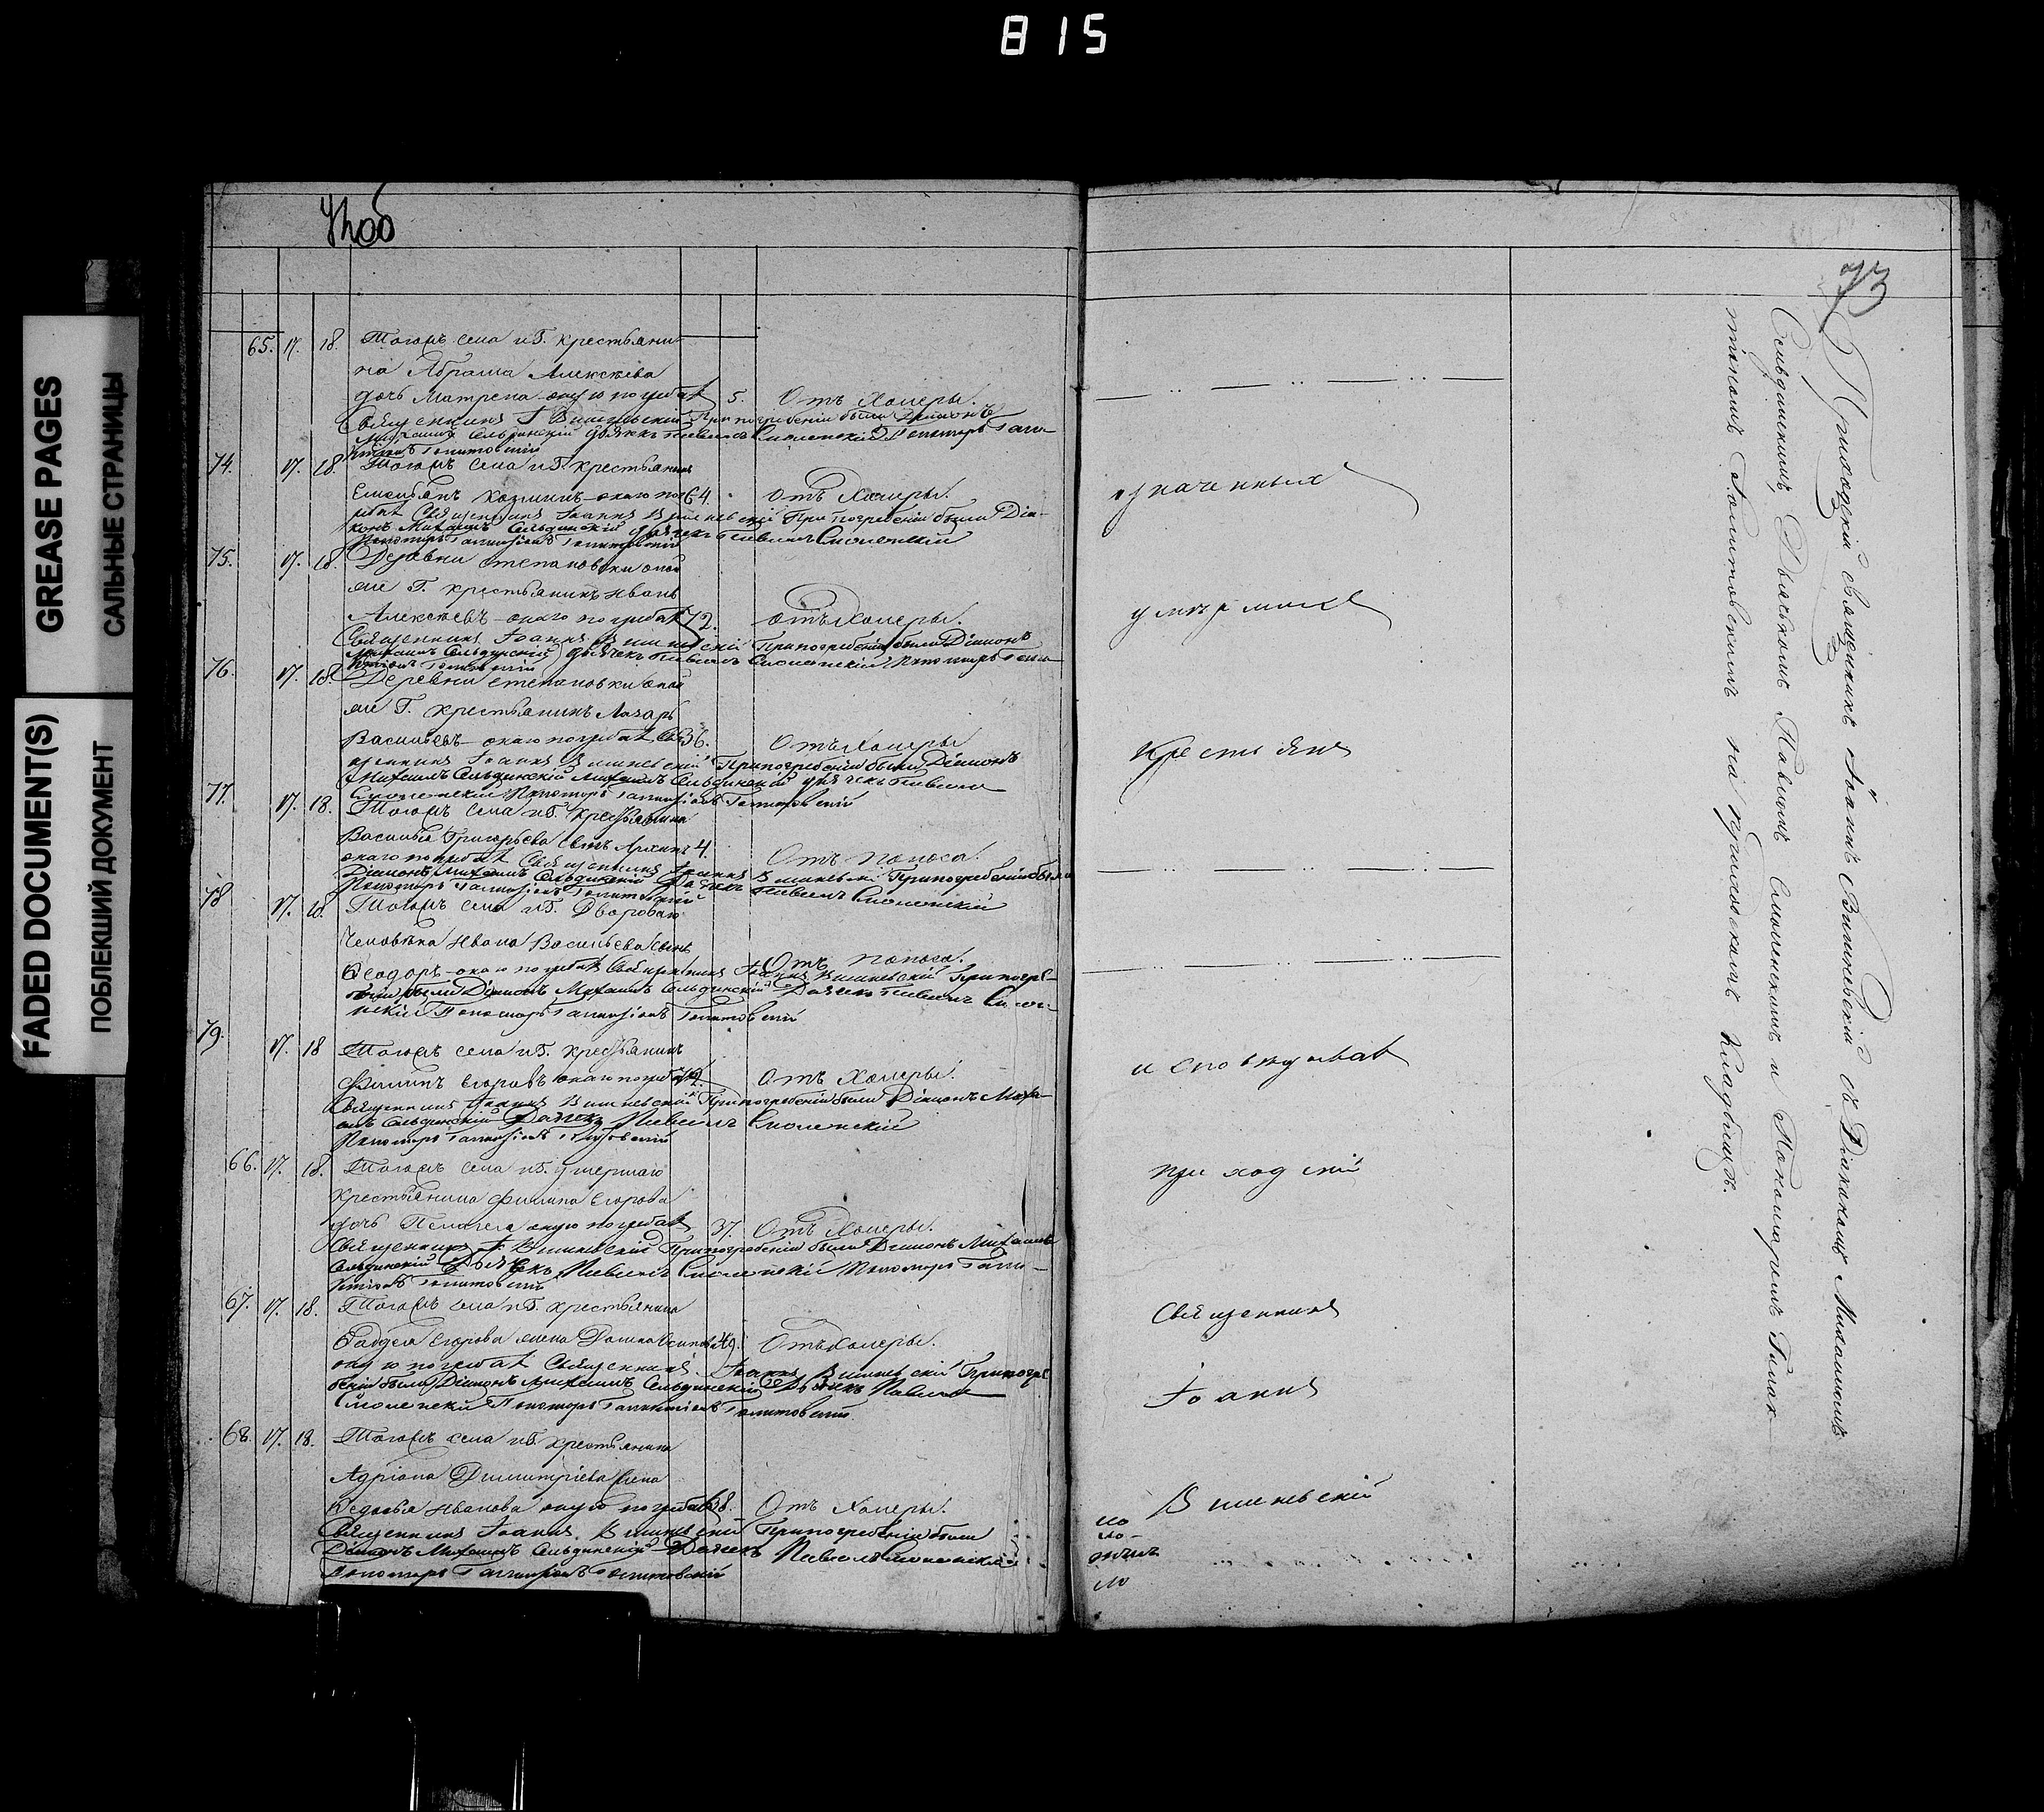 815
GREASE PAGES
САЛЬНЫЕ СТРАНИЦЫ
FADED DOCUMENT(S)
ПОБЛЕКШИЙ ДОКУМЕНТ
73
65. 17. 18. Тогожъ села и Г. крестьяни-
на Абрама Алексѣева
дочь Матрена оную погребалъ 5. Отъ Холеры.
Священникъ І Вишневскій При погребеніи были Діаконъ
Михаилъ Сельдинскій Дьячекъ Павелъ Смоленскій Пономарь
74. 17. 18. Тогожъ села и Г. крестьянинъ
Емельянъ Козминъ онаго пог 64. Отъ Холеры.
ребалъ Священникъ Іоаннъ Вишневскій При погребеніи были Діа-
конъ Михаилъ Сельдинскій Дьячекъ Павелъ Смоленскій
75. 17. 18. Деревни Степановки
Г. крестьянинъ Иванъ
Алексѣевъ онаго погребалъ 72. отъ Холеры.
Священникъ Іоаннъ Вишневскій При погребеніи были Діаконъ
Михаилъ Сельдинскій Дьячекъ Павелъ Смоленскій Пономарь
76. 17. 18. Деревни Степановки
Г. крестьянинъ Лазарь
Васильевъ онаго погребалъ Свя 36. Отъ Холеры
щенникъ Іоаннъ Вишневскій При погребеніи были Діаконъ
Михаилъ Сельдинскій Михаилъ Сельдинскій Дьячекъ Павелъ
Смоленскій Пономарь
77. 17. 18. Тогожъ села и Г. крестьянина
Василья Григорьева сынъ 4. Отъ поноса.
онаго погребалъ Священникъ Іоаннъ Вишневскій При погребеніи были
Діаконъ Михаилъ Сельдинскій Дьячекъ Павелъ Смоленскій
Пономарь
78 17. 18. Тогожъ села и Г. Двороваго
человѣка Ивана Васильева сынъ
Ѳеодоръ онаго погребалъ Священникъ Отъ поноса.
Іоаннъ Вишневскій При погре-
беніи были Діаконъ Михаилъ Сельдинскій Дьячекъ Павелъ Смоле-
нскій Пономарь
79. 17. 18 Тогожъ села и Г. крестьянинъ
Филипъ Егоровъ онаго погребалъ 72. Отъ Холеры.
Священникъ Іоаннъ Вишневскій При погребеніи были Діаконъ Миха-
илъ Сельдинскій Дьячекъ Павелъ Смоленскій
Пономарь
66. 17. 18. Тогожъ села и Г. умершаго
крестьянина Филипа Егорова
дочь Пелагея оную погребалъ 37. Отъ Холеры.
Священникъ І. Вишневскій При погребеніи были Діаконъ Михаилъ
Сельдинскій Дьячекъ Павелъ Смоленскій Пономарь
67. 17. 18. Тогожъ села и Г. крестьянина
Егорова жена 49. Отъ Холеры.
оную погребалъ Священникъ Іоаннъ Вишневскій При погре
беніи были Діаконъ Михаилъ Сельдинскій Дьячекъ Павелъ
Смоленскій Пономарь
68. 17. 18. Тогожъ села и Г. крестьянина
Адріана Димитріева жена
Ѳедосья Иванова оную погребалъ 68. Отъ Холеры.
Священникъ Іоаннъ Вишневскій При погребеніи были
Діаконъ Михаилъ Сельдинскій Дьячекъ Павелъ Смоленскій
Пономарь
означенныхъ
умершихъ
крестьянъ
исповѣдывалъ
приходскій
Священникъ
Іоаннъ
Вишневскій
Приходскій священникъ Іоаннъ Вишневскій съ Діакономъ Михаиломъ
Сельдинскимъ, Дьячькомъ Павломъ Смоленскимъ и Пономаремъ
на приходскомъ кладбищѣ.